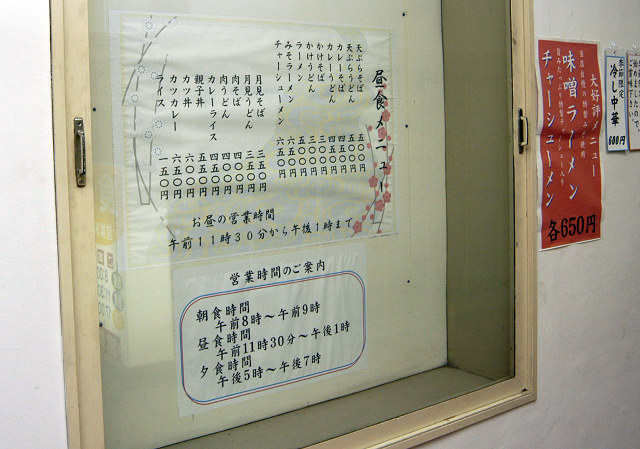 昼食メニュー
天ぷらそば 五五〇円
天ぷらうどん 五五〇円
カレーそば
カレーうどん
かけそば 三〇〇円
かけうどん 三〇〇円
ラーメン 四五〇円
みそラーメン
チャーシューメン 六五〇円
月見そば 三五〇円
月見うどん 三五〇円
肉そば 四〇〇円
肉うどん 四〇〇円
カレーライス
親子丼 五五〇円
カツ丼 六五〇円
カツカレー 六五〇円
ライス 一五〇円
お昼の営業時間
午前11時30分から午後1時まで
営業時間のご案内
朝食時間
午前8時〜午前9時
昼食時間
午前11時30分〜午後1時
夕食時間
午後5時〜午後7時
大好評メニュー
味噌ラーメン
チャーシューメン
各650円
季節限定
冷し中華
600円